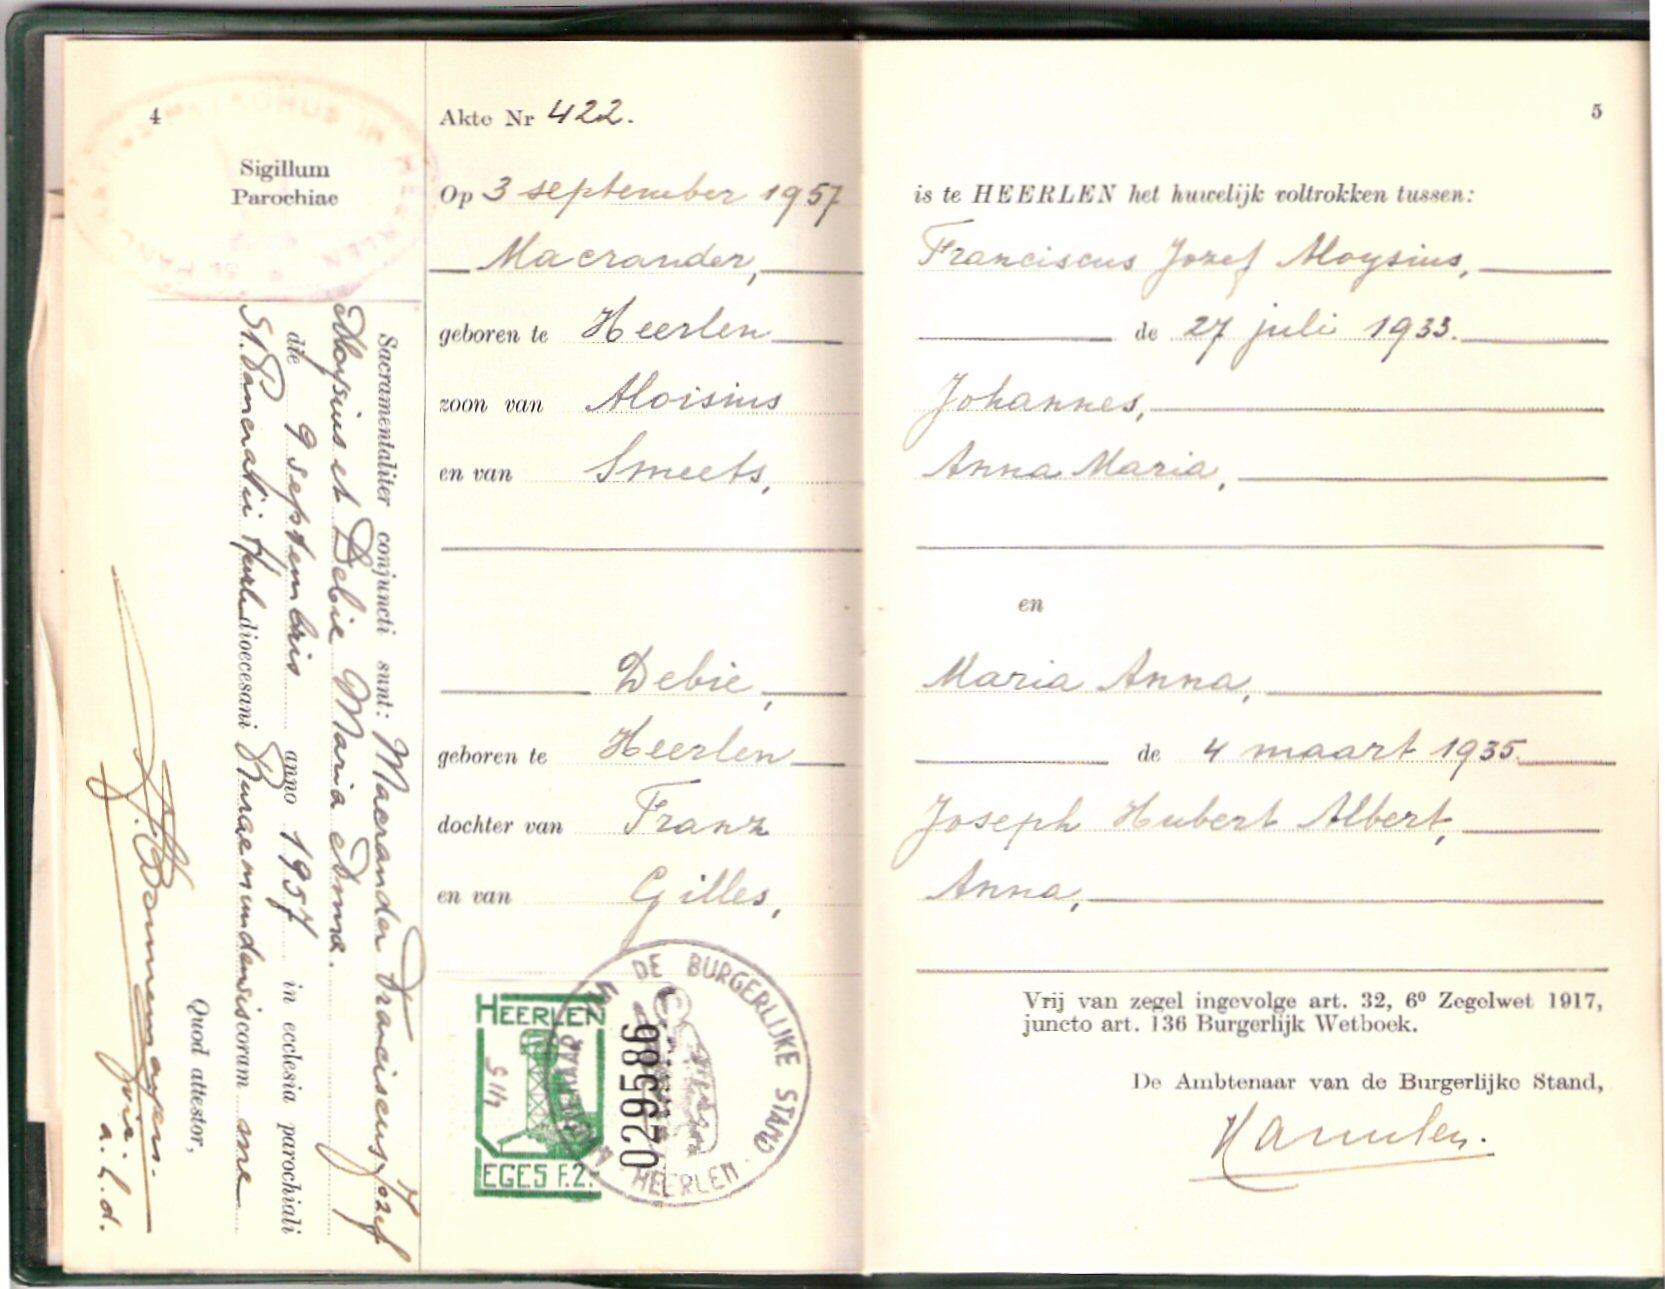 4
Sigillum
Parochiae
Sacramentaliter conjuncti sunt: Macrander Franciscus Jozef
Aloysius et Debie Maria Anna.
die 9 septembris anno 1957 in ecclesia parochiali
St. Pancratii dioecesani Ruraemundensis coram me
Quod attestor,
a.l.d.
Akte Nr 422.
Op 3 september 1957
Macrander,
geboren te Heerlen
zoon van Aloisius
en van Smeets,
Debie,
geboren te Heerlen
dochter van Franz
en van Gilles,
HEERLEN
LEGES F.2.-
029586
AMBTENAAR VAN DE BURGERLIJKE STAND
HEERLEN
5
is te HEERLEN het huwelijk voltrokken tussen:
Franciscus Jozef Aloysius,
de 27 juli 1933.
Johannes,
Anna Maria,
en
Maria Anna,
de 4 maart 1935.
Joseph Hubert Albert,
Anna,
Vrij van zegel ingevolge art. 32, 6º Zegelwet 1917,
juncto art. 136 Burgerlijk Wetboek.
De Ambtenaar van de Burgerlijke Stand,